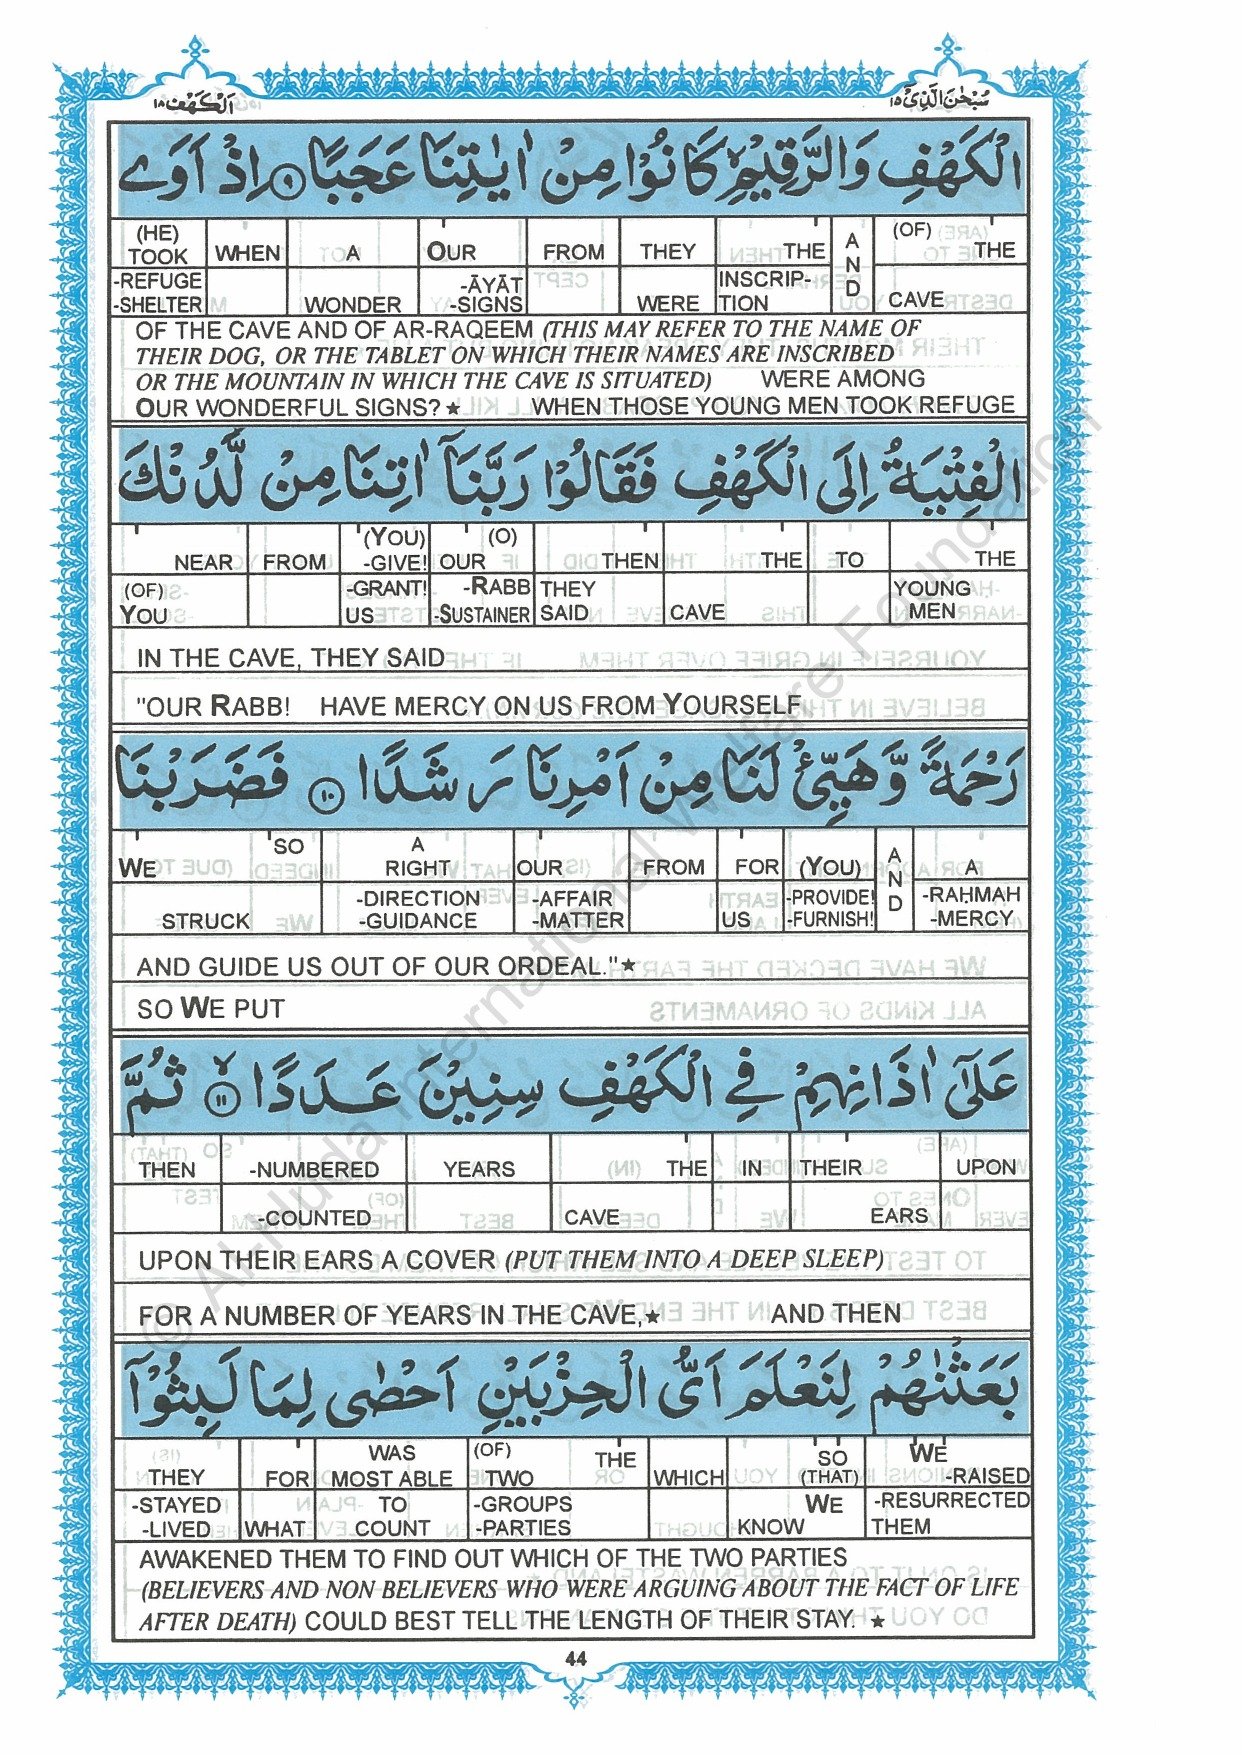 اَلْكَهْف ١٨
سُبْحٰنَ الَّذِىْ ١٥
الْكَهْفِ وَالرَّقِيْمِ كَانُوْا مِنْ اٰيٰتِنَا عَجَبًا ﴿٩﴾ اِذْ اَوَى
(HE) TOOK WHEN A OUR FROM THEY THE AND (OF) THE
-REFUGE -SHELTER WONDER -ĀYĀT -SIGNS WERE INSCRIP-TION CAVE
OF THE CAVE AND OF AR-RAQEEM (THIS MAY REFER TO THE NAME OF
THEIR DOG, OR THE TABLET ON WHICH THEIR NAMES ARE INSCRIBED
OR THE MOUNTAIN IN WHICH THE CAVE IS SITUATED) WERE AMONG
OUR WONDERFUL SIGNS?★ WHEN THOSE YOUNG MEN TOOK REFUGE
الْفِتْيَةُ اِلَى الْكَهْفِ فَقَالُوْا رَبَّنَآ اٰتِنَا مِنْ لَّدُنْكَ
NEAR FROM (YOU) -GIVE! (O) OUR THEN THE TO THE
(OF) YOU -GRANT! US -RABB -SUSTAINER THEY SAID CAVE YOUNG MEN
IN THE CAVE, THEY SAID
"OUR RABB! HAVE MERCY ON US FROM YOURSELF
رَحْمَةً وَّهَيِّئْ لَنَا مِنْ اَمْرِنَا رَشَدًا ﴿١٠﴾ فَضَرَبْنَا
WE SO A RIGHT OUR FROM FOR (YOU) AND A
STRUCK -DIRECTION -GUIDANCE -AFFAIR -MATTER US -PROVIDE! -FURNISH! -RAḤMAH -MERCY
AND GUIDE US OUT OF OUR ORDEAL."★
SO WE PUT
عَلٰٓى اٰذَانِهِمْ فِى الْكَهْفِ سِنِيْنَ عَدَدًا ﴿١١﴾ ثُمَّ
THEN -NUMBERED YEARS THE IN THEIR UPON
-COUNTED CAVE EARS
UPON THEIR EARS A COVER (PUT THEM INTO A DEEP SLEEP)
FOR A NUMBER OF YEARS IN THE CAVE,★ AND THEN
بَعَثْنٰهُمْ لِنَعْلَمَ اَىُّ الْحِزْبَيْنِ اَحْصٰى لِمَا لَبِثُوْٓا
THEY FOR WAS MOST ABLE (OF) TWO THE WHICH SO (THAT) WE -RAISED
-STAYED -LIVED WHAT TO COUNT -GROUPS -PARTIES WE KNOW -RESURRECTED THEM
AWAKENED THEM TO FIND OUT WHICH OF THE TWO PARTIES
(BELIEVERS AND NON BELIEVERS WHO WERE ARGUING ABOUT THE FACT OF LIFE
AFTER DEATH) COULD BEST TELL THE LENGTH OF THEIR STAY. ★
44
© Al-Huda International Welfare Foundation